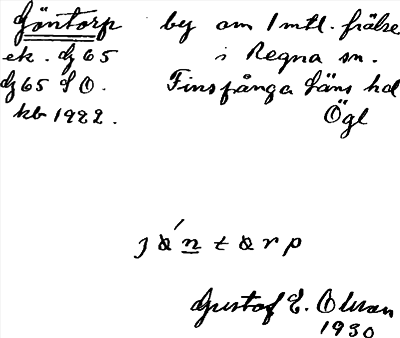 Göntorp by om 1 mtl. frälse
ek. dj 65 i Regna sn.
dj 65 SO. Finspånga läns hd
kb 1922. Ögl
Gustaf E. Olsson
1930